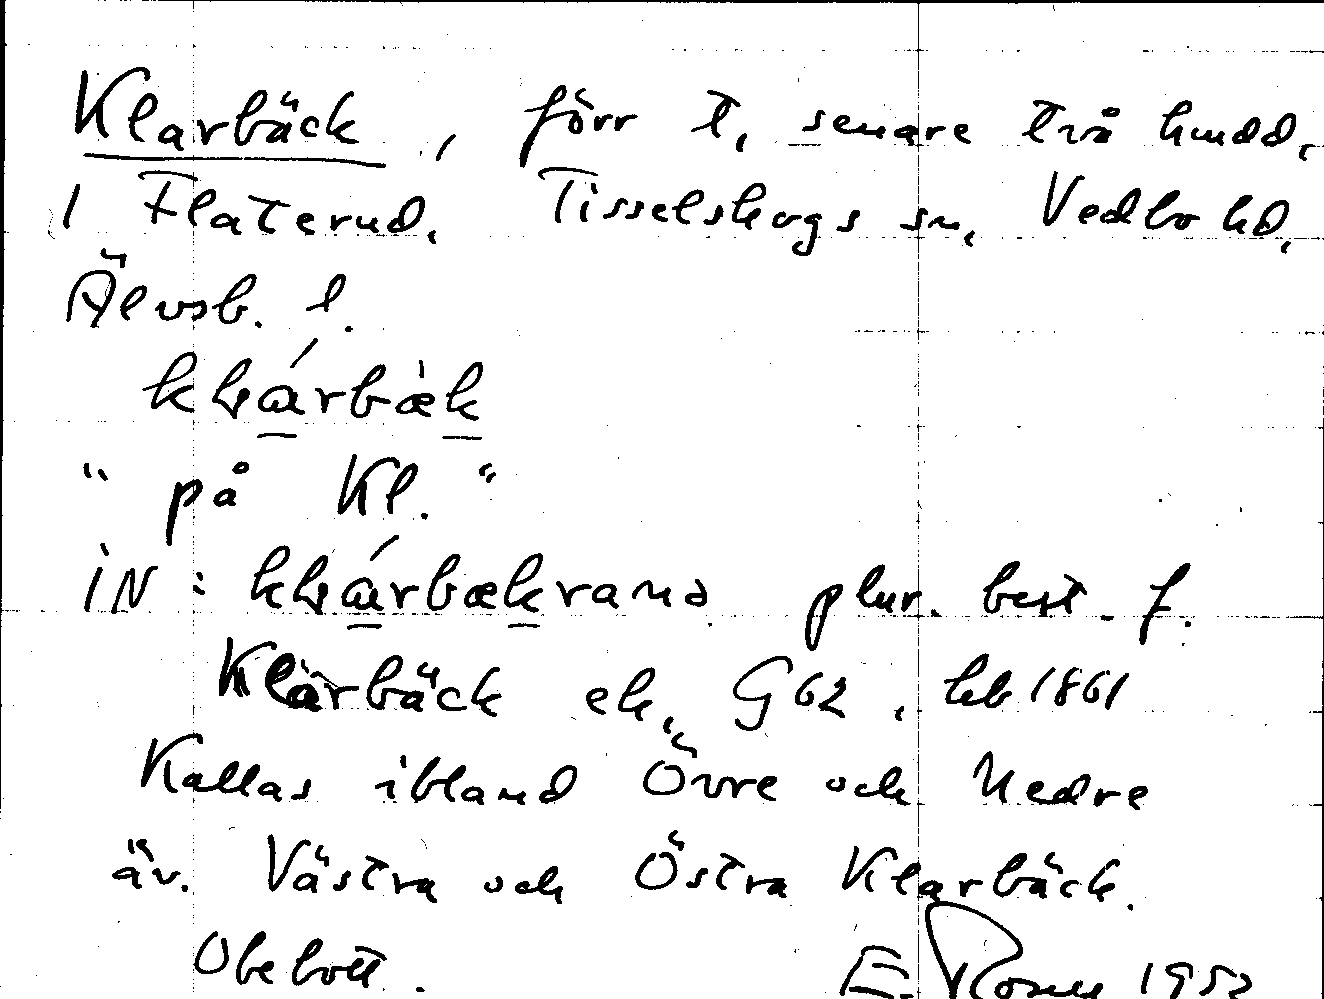 Klarbäck, förr t, senare två hmdd,
i Flaterud. Tisselskogs sn, Vedbo hd,
Älvsb. l.
"på Kl."
IN: plur. best. f.
Klarbäck ek, G62, hb 1861
Kallas ibland Övre och Nedre
äv. Västra och Östra Klarbäck.
Obebott.
E. 1952